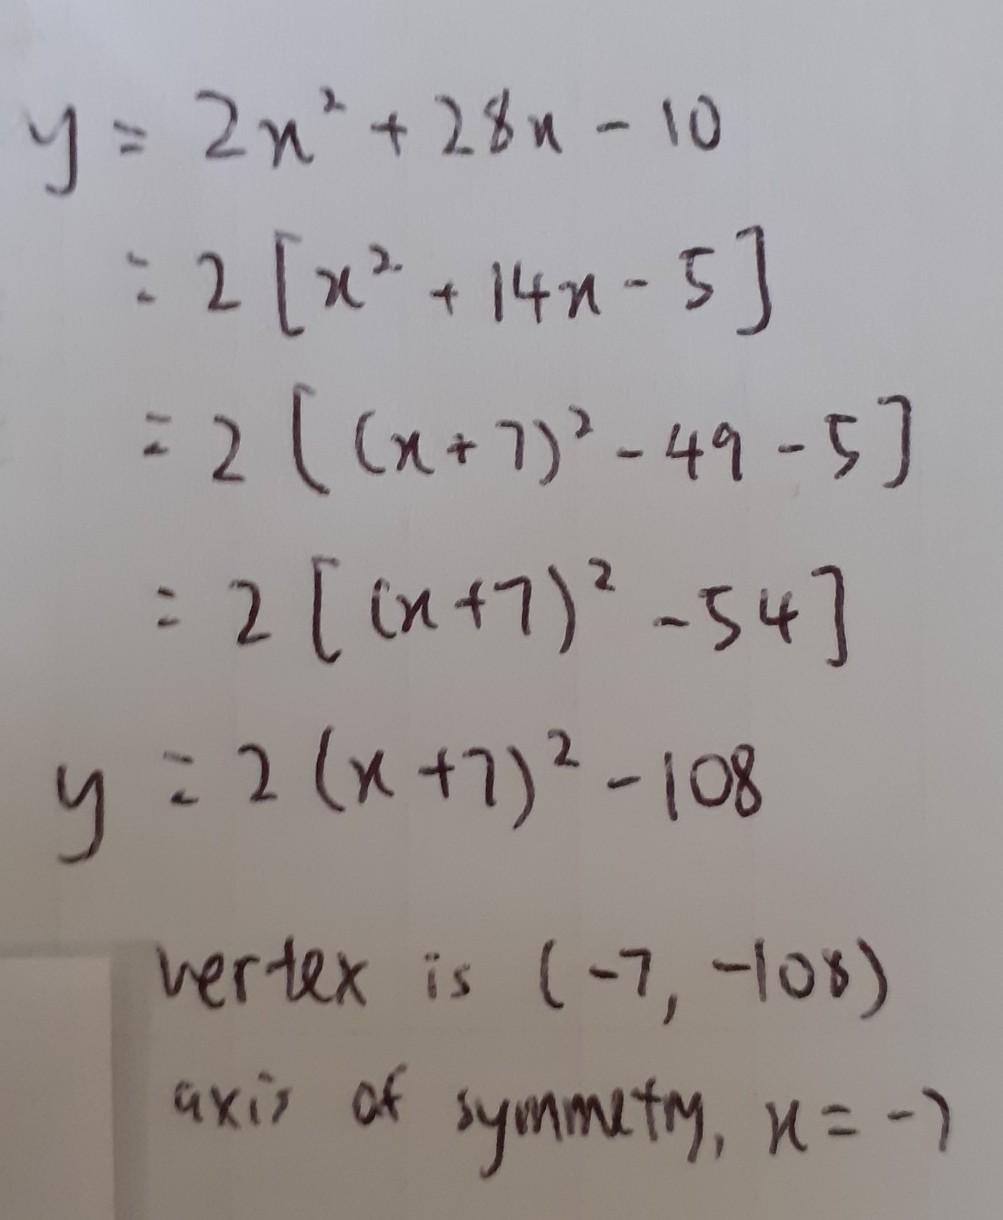 y = 2x² + 28x - 10
= 2 [x² + 14x - 5]
= 2 [(x + 7)² - 49 - 5]
= 2 [(x + 7)² - 54]
y = 2 (x + 7)² - 108
vertex is (-7, -108)
axis of symmetry, x = -7